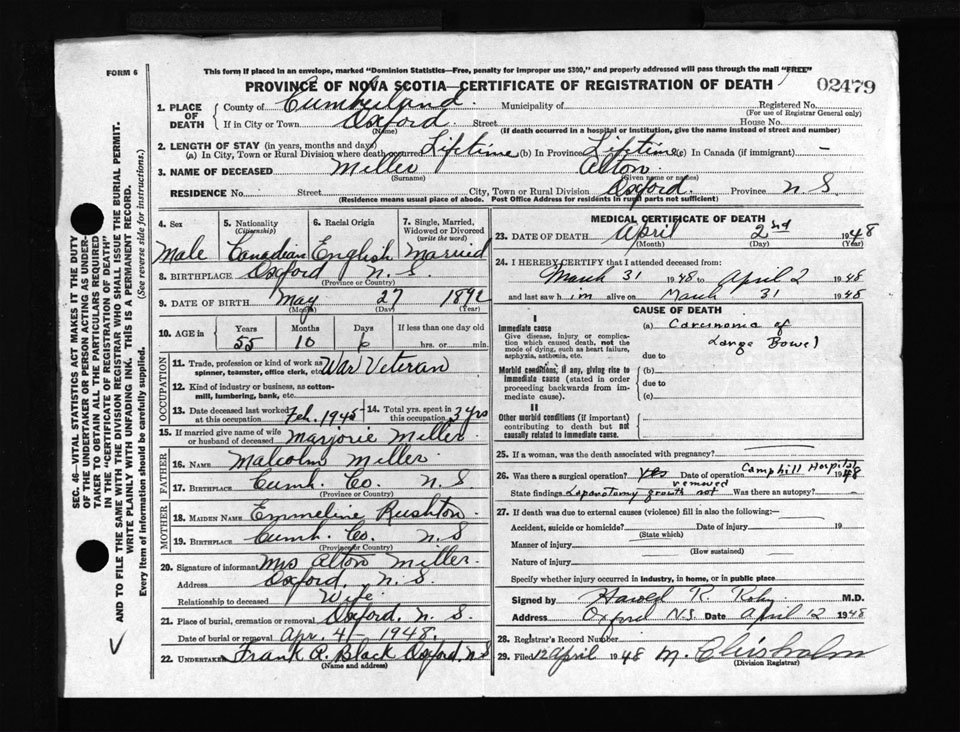 FORM 6
This form if placed in an envelope, marked "Dominion Statistics—Free, penalty for improper use $300," and properly addressed will pass through the mail "FREE"
PROVINCE OF NOVA SCOTIA—CERTIFICATE OF REGISTRATION OF DEATH
02479
1. PLACE OF DEATH County of Cumberland Municipality of Registered No.
(For use of Registrar General only)
If in City or Town Oxford Street House No.
(Name) (If death occurred in a hospital or institution, give the name instead of street and number)
2. LENGTH OF STAY (in years, months and days)
(a) In City, Town or Rural Division where death occurred Lifetime (b) In Province Lifetime (c) In Canada (if immigrant) —
3. NAME OF DECEASED Miller Alton
(Surname) (Given name or names)
RESIDENCE No. Street City, Town or Rural Division Oxford. Province N.S.
(Residence means usual place of abode. Post Office Address for residents in rural parts not sufficient)
4. Sex Male
5. Nationality (Citizenship) Canadian
6. Racial Origin English
7. Single, Married, Widowed or Divorced (write the word) Married
8. BIRTHPLACE Oxford N.S.
(Province or Country)
9. DATE OF BIRTH May 27 1892
(Month) (Day) (Year)
10. AGE in Years Months Days If less than one day old
55 10 6 hrs. or min.
OCCUPATION
11. Trade, profession or kind of work as spinner, teamster, office clerk, etc. War Veteran
12. Kind of industry or business, as cotton-mill, lumbering, bank, etc.
13. Date deceased last worked at this occupation Feb. 1948 14. Total yrs. spent in this occupation 3 yrs
15. If married give name of wife or husband of deceased Marjorie Miller.
FATHER
16. NAME Malcolm Miller.
17. BIRTHPLACE Cumb. Co. N.S.
(Province or Country)
MOTHER
18. MAIDEN NAME Emmeline Rushton
19. BIRTHPLACE Cumb. Co. N.S
(Province or Country)
20. Signature of informant Mrs Alton Miller.
Address Oxford, N.S.
Relationship to deceased Wife.
21. Place of burial, cremation or removal Oxford. N.S
Date of burial or removal Apr. 4 - 1948.
22. Undertaker Frank R. Black Oxford, N.S
(Name and address)
MEDICAL CERTIFICATE OF DEATH
23. DATE OF DEATH April 2nd 1948
(Month) (Day) (Year)
24. I HEREBY CERTIFY that I attended deceased from:
March 31 1948 to April 2 1948
and last saw him alive on March 31 1948
CAUSE OF DEATH
I
Immediate cause
Give disease, injury or complication which caused death, not the mode of dying, such as heart failure, asphyxia, asthenia, etc.
(a) Carcinoma of
Large Bowel
due to
Morbid conditions, if any, giving rise to immediate cause (stated in order proceeding backwards from immediate cause).
(b)
due to
(c)
II
Other morbid conditions (if important) contributing to death but not causally related to immediate cause.
25. If a woman, was the death associated with pregnancy?
26. Was there a surgical operation? Yes Date of operation Camp hill Hospital 1948
State findings Laporotomy growth not removed Was there an autopsy? -
27. If death was due to external causes (violence) fill in also the following:—
Accident, suicide or homicide? Date of injury 19
(State which)
Manner of injury
(How sustained)
Nature of injury
Specify whether injury occurred in industry, in home, or in public place
Signed by Harold R. M.D.
Address Oxford N.S. Date April 12 1948
28. Registrar's Record Number
29. Filed 12 April 1948 M. Chisholm
(Division Registrar)
SEC. 46—VITAL STATISTICS ACT MAKES IT THE DUTY OF THE UNDERTAKER OR PERSON ACTING AS UNDERTAKER TO OBTAIN ALL THE PARTICULARS REQUIRED IN THE "CERTIFICATE OF REGISTRATION OF DEATH"
AND TO FILE THE SAME WITH THE DIVISION REGISTRAR WHO SHALL ISSUE THE BURIAL PERMIT.
WRITE PLAINLY WITH UNFADING INK. THIS IS A PERMANENT RECORD.
Every item of information should be carefully supplied. (See reverse side for instructions.)